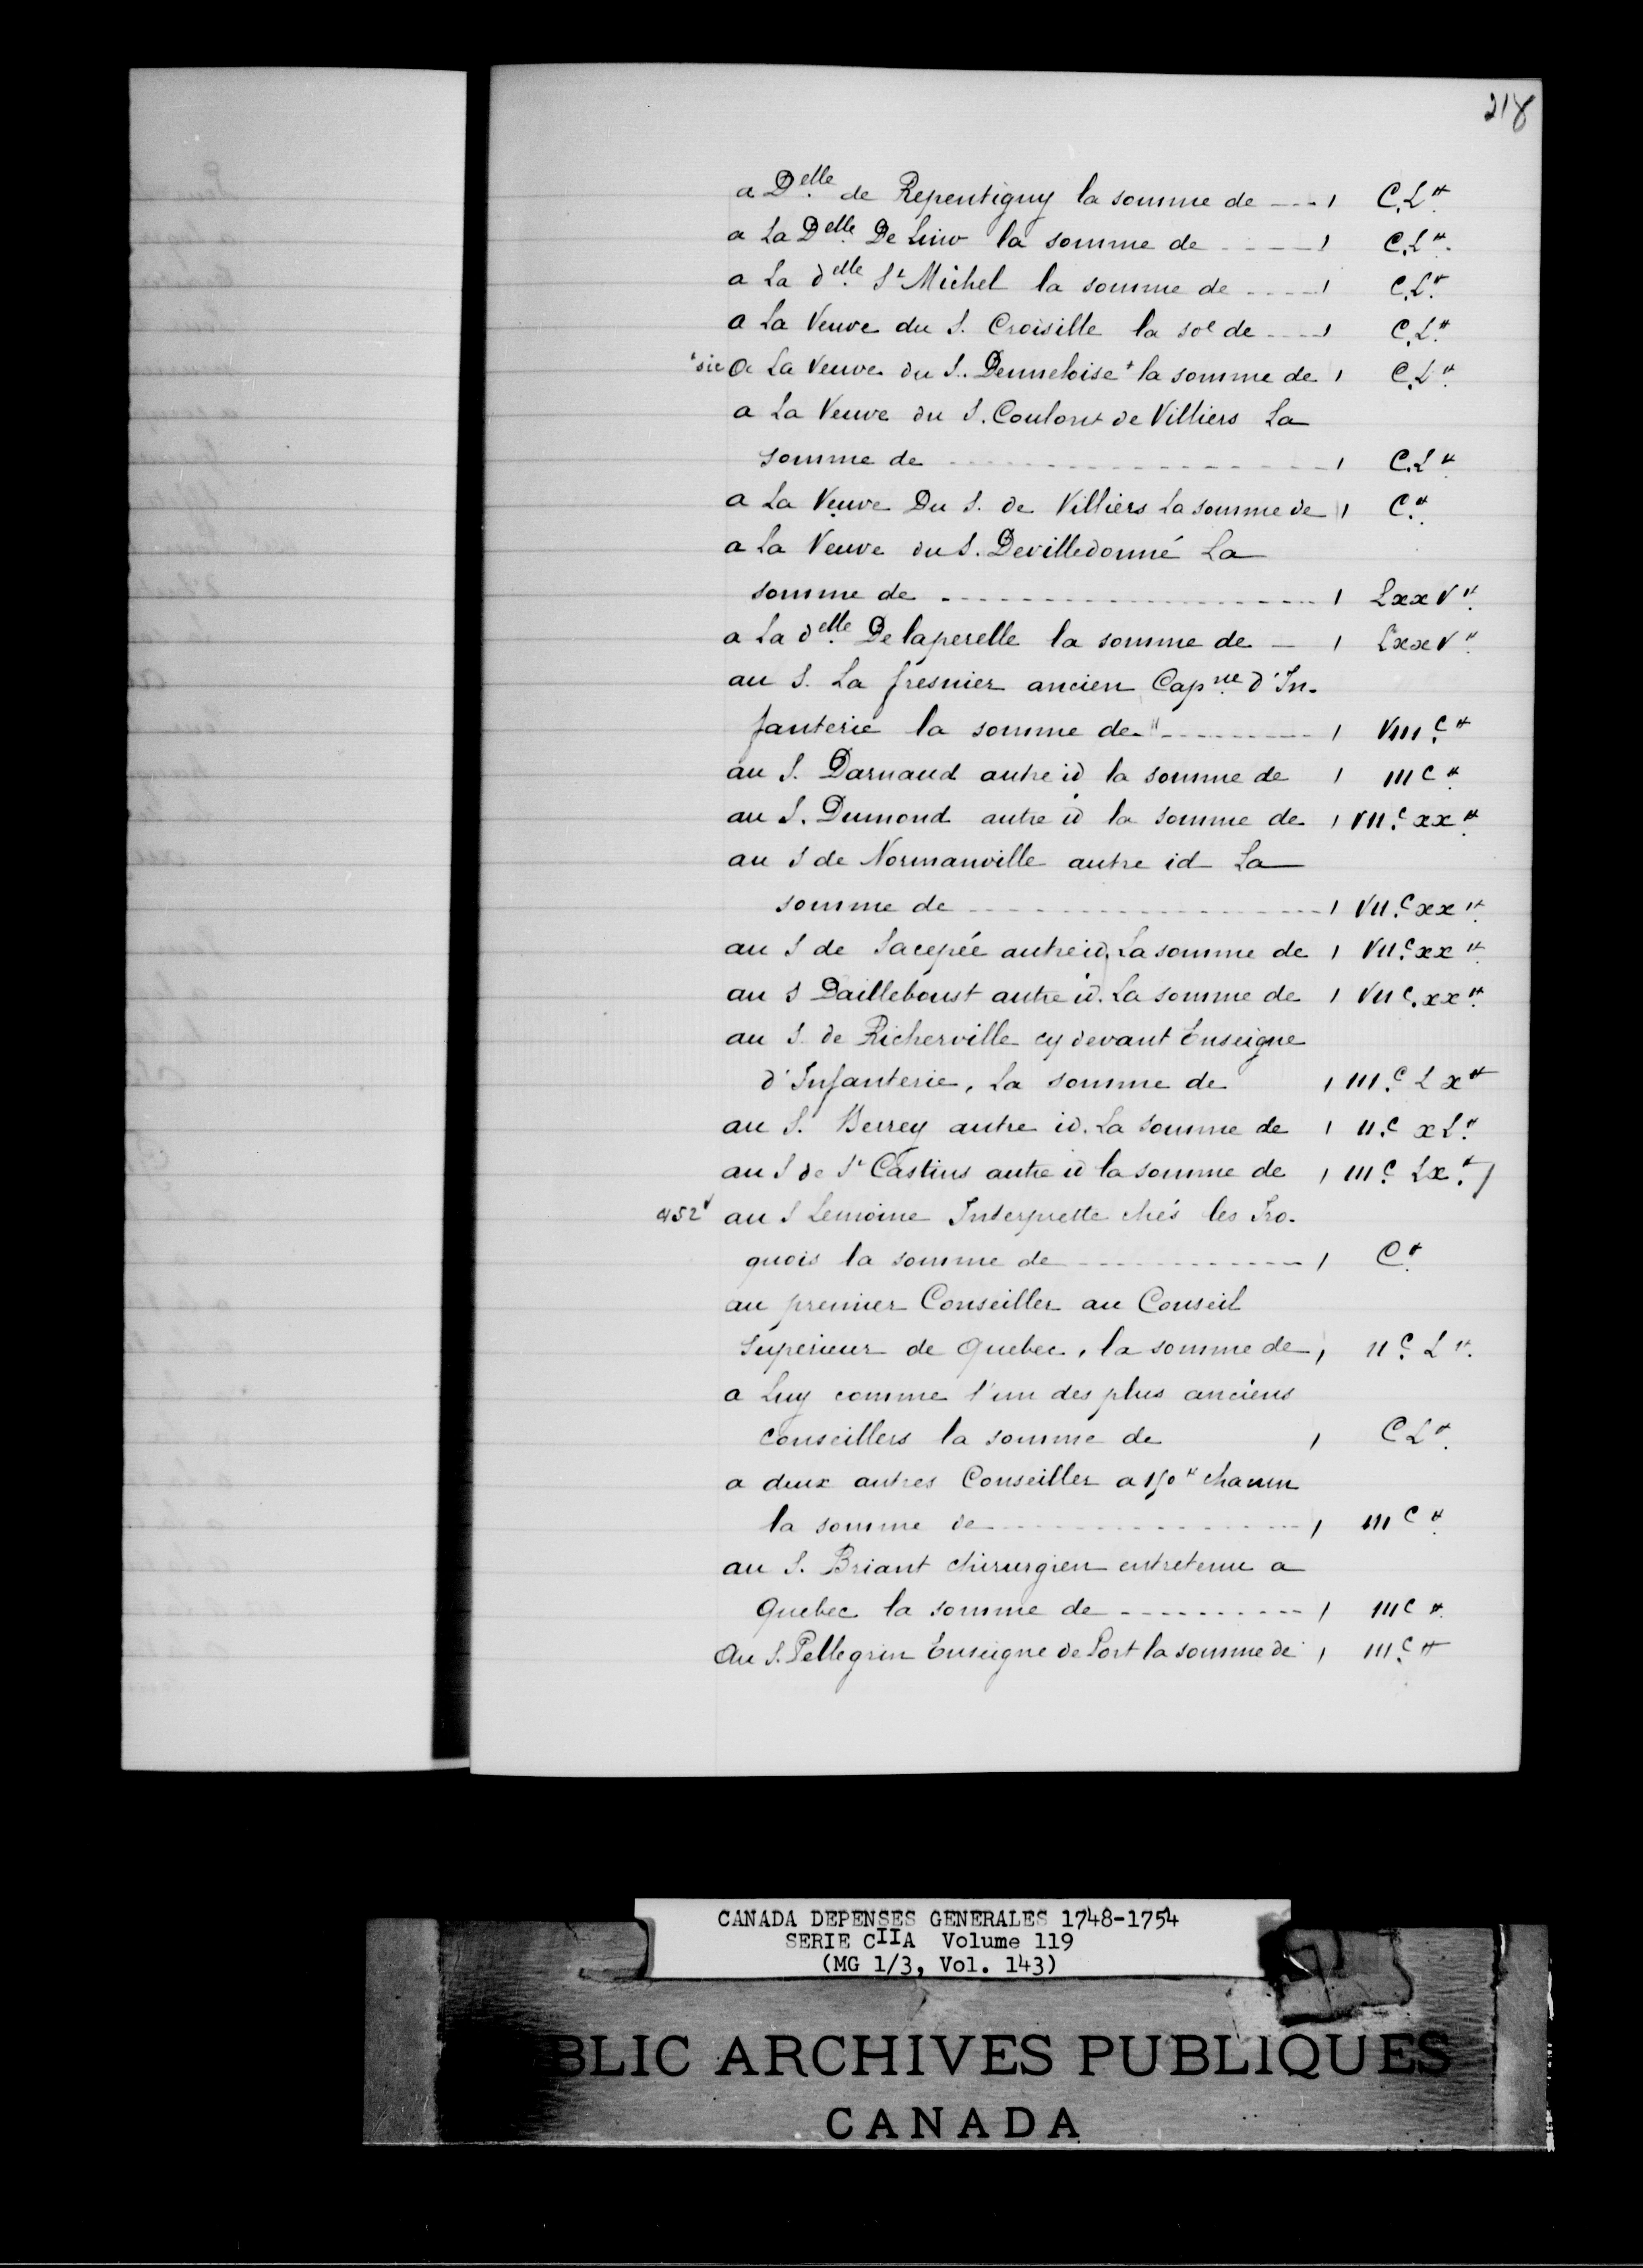 218
a Delle de Repentigny la somme de ---- , C.L#.
a La Delle De Lino la somme de ----- , C.L#.
a La delle St Michel la somme de ----- , C.L#.
a La Veuve du S. Croisille la soe de ---- , C.L#
+sic a La Veuve du S. Denneloise + la somme de , C.L#.
a La Veuve du S. Coulont de Villiers La
somme de ------------------ , C.L#.
a La Veuve Du S. de Villiers La somme de , C.#
a La Veuve du S. Devilledonné La
somme de ------------------ , LxxV#.
a La delle De laperelle la somme de — , LxxV#.
au S. La fresnier ancien Capne d'In-
fanterie la somme de ---------- , VIII.C#
au S. Darnaud autre id la somme de , IIIC#.
au S. Dumond autre id la somme de , VII.C xx#.
au S de Normanville autre id La
somme de ------------------ , VII.C xx#.
au S de Sacepée autre id. La somme de , VII.C xx#.
au S Dailleboust autre id. La somme de , VII C. xx#.
au S. de Richerville cy devant Enseigne
d'Infanterie, La somme de , III.C L x#
au S. Berrey autre id. La somme de , II.C x L.#
au S de St Castins autre id la somme de , III.C Lx.# /
452v au S Lemoine Interprette chés les Iro-
quois la somme de ------------- , C#.
au premier Conseiller au Conseil
Superieur de Quebec, la somme de , II C. L#.
a Luy comme l'un des plus anciens
conseillers la somme de , C L#.
a deux autres Conseiller a 150# chacun
la somme de ---------------- , III C#.
au S. Briant chirurgien entretenu a
Quebec la somme de ---------- , III C#.
Au S. Pellegrin Enseigne de Port la somme de , III.C#
CANADA DEPENSES GENERALES 1748-1754
SERIE CIIA Volume 119
(MG 1/3, Vol. 143)
BLIC ARCHIVES PUBLIQUES
CANADA